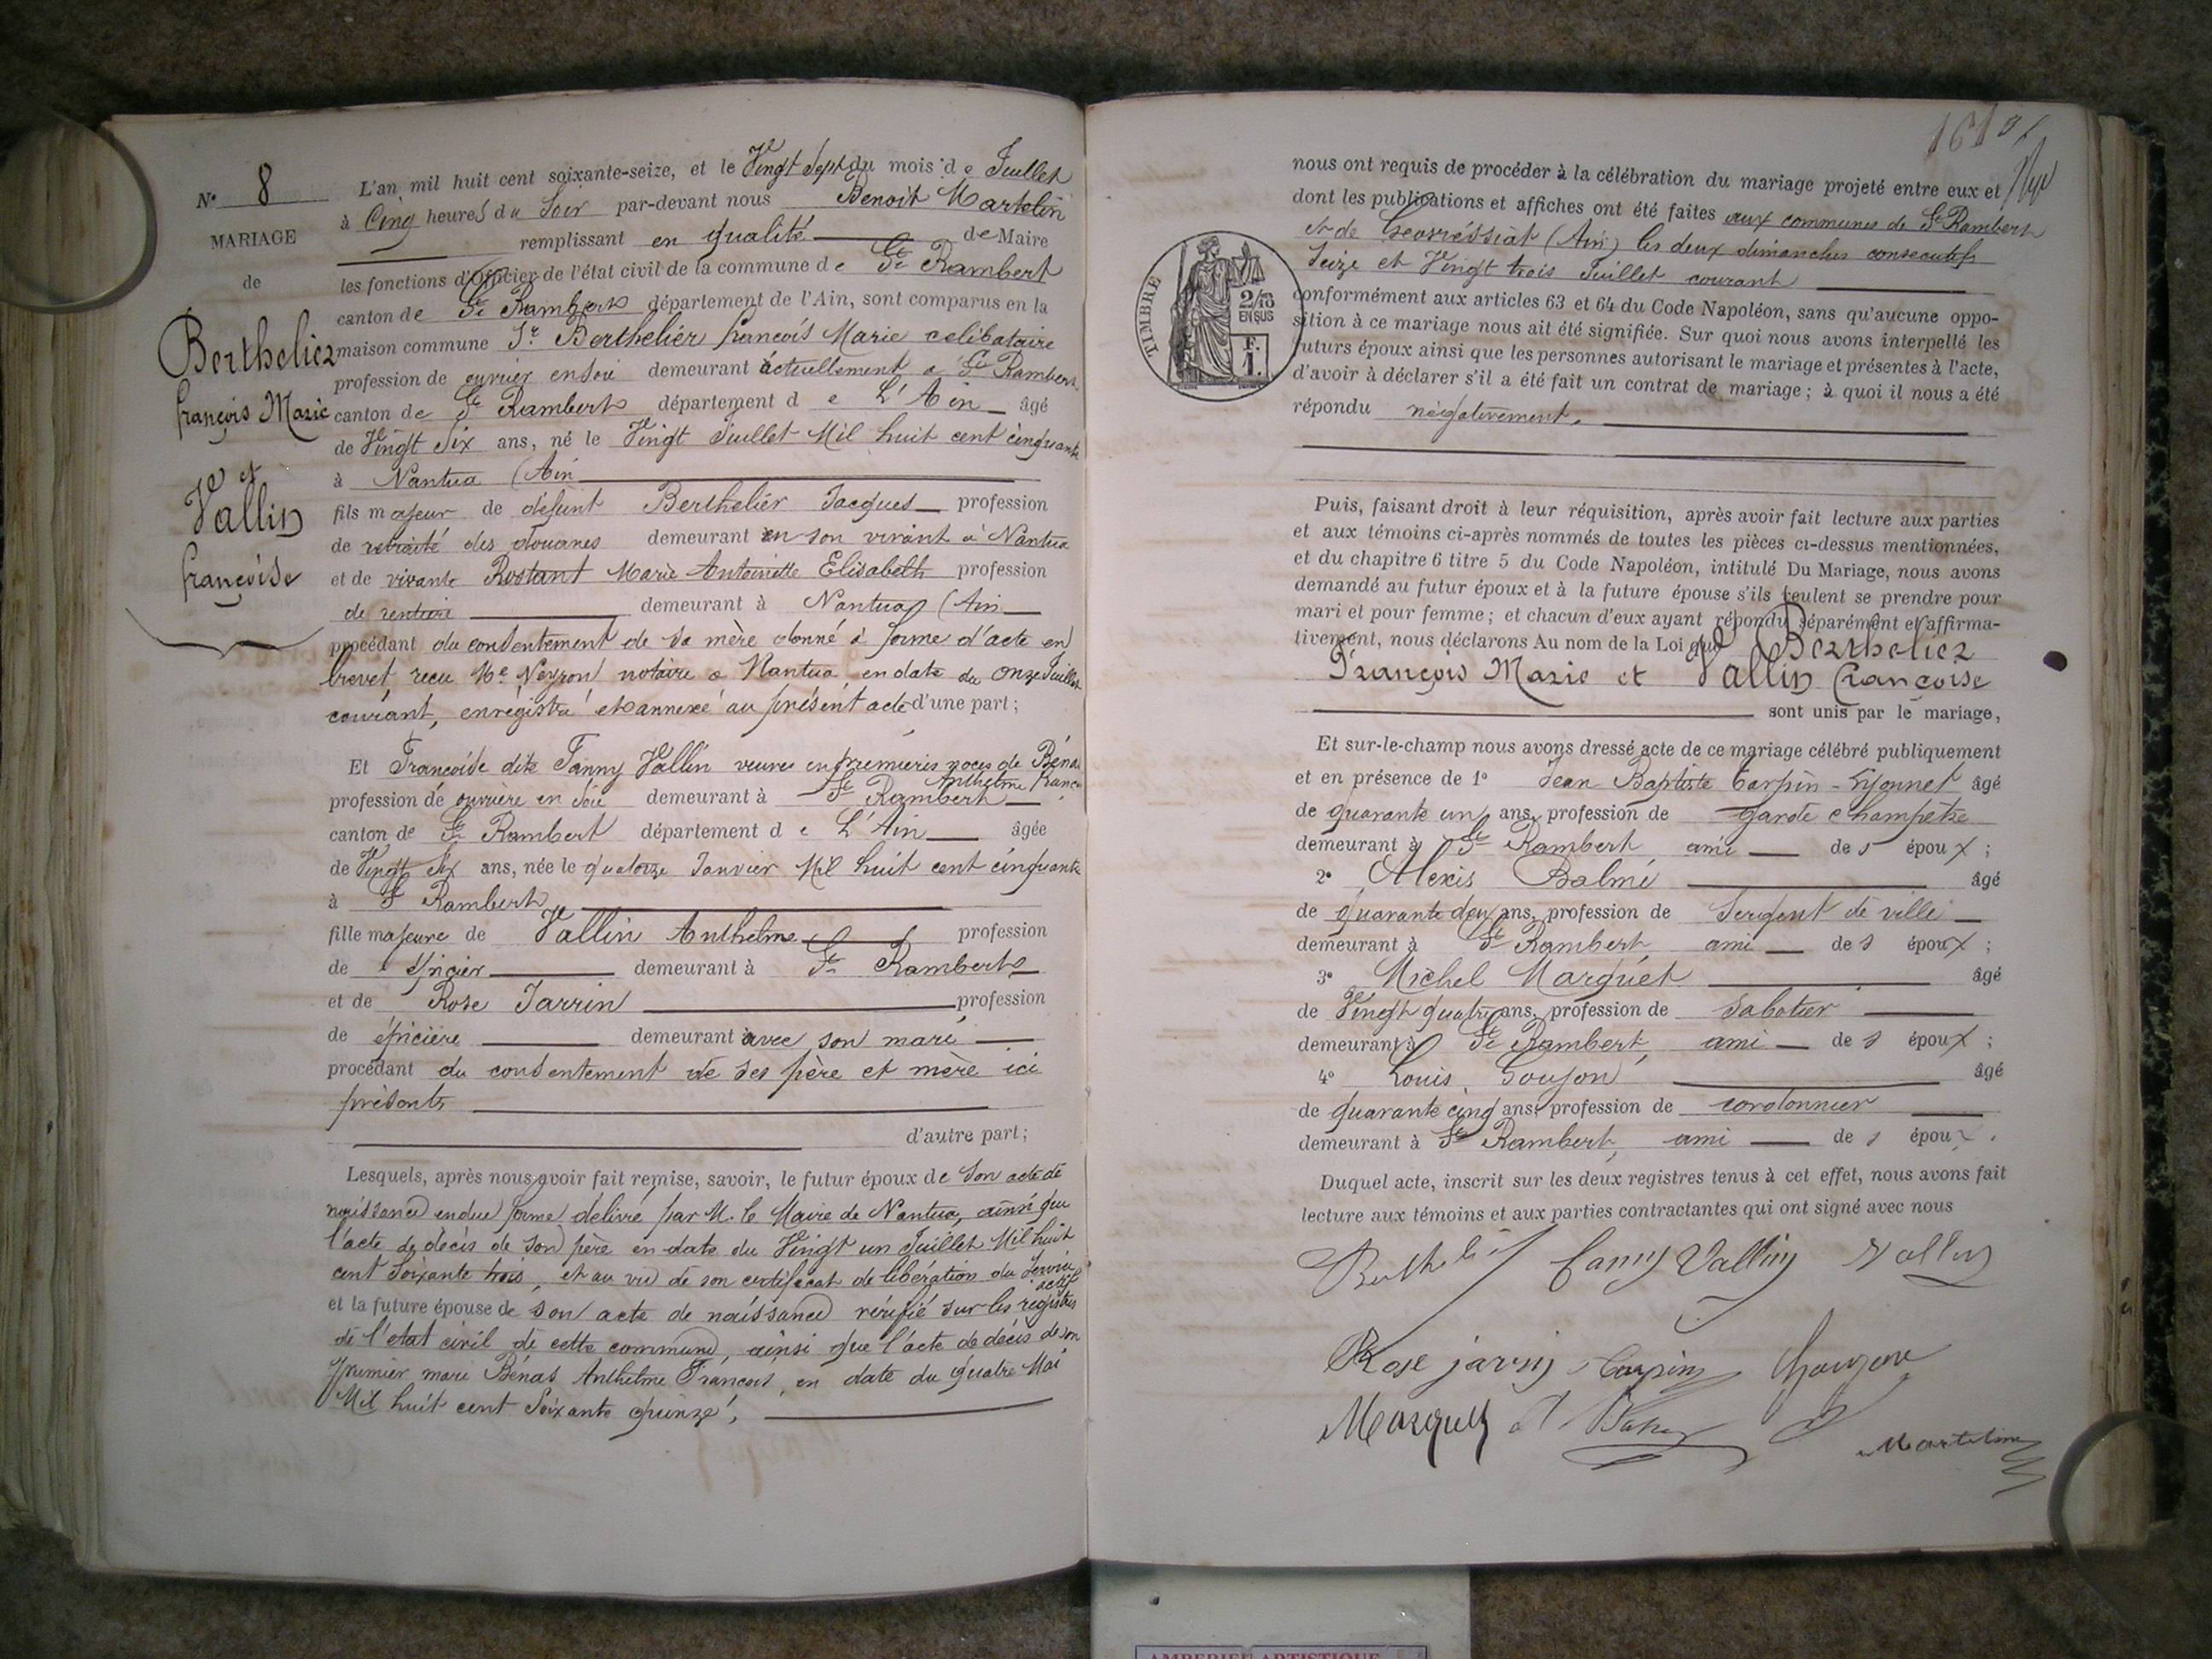 N° 8
MARIAGE
de
Berthelier
françois Marie
et
Vallin
françoise
L'an mil huit cent soixante-seize, et le Vingt Sept du mois de Juillet
à Cinq heures du Soir par-devant nous Benoit Martelin
remplissant en qualité de Maire
les fonctions d'officier de l'état civil de la commune de St Rambert
canton de St Rambert département de l'Ain, sont comparus en la
maison commune Sr Berthelier francois Marie celibataire
profession de ouvrier en soie demeurant actuellement à St Rambert
canton de St Rambert département de L'Ain âgé
de Vingt Six ans, né le Vingt Juillet Mil huit cent cinquante
à Nantua (Ain
fils majeur de défunt Berthelier Jacques profession
de retraité des douanes demeurant en son vivant à Nantua
et de vivante Rostant Marie Antoinette Elisabeth profession
de rentière demeurant à Nantua (Ain
procédant du consentement de sa mère donné à forme d'acte en
brevet, reçu Me Neyron notaire à Nantua, en date du onze Juillet
courant, enregistré et annexé au présent acte d'une part;
Et Francoise dite Fanny Vallin veuve en premieres noces de Bénas
Anthelme Franc
profession de ouvrière en soie demeurant à St Rambert
canton de St Rambert département de L'Ain âgée
de Vingt Six ans, née le quatorze Janvier Mil huit cent cinquante
à St Rambert
fille majeure de Vallin Anthelme profession
de épicier demeurant à St Rambert
et de Rose Jarrin profession
de épicière demeurant avec son mari
procédant du consentement de ses père et mère ici
présents
d'autre part;
Lesquels, après nous avoir fait remise, savoir, le futur époux de son acte de
naissance en due forme délivré par M. le Maire de Nantua, ainsi que
l'acte de décès de son père en date du Vingt un Juillet Mil huit
cent soixante trois, et au vu de son certificat de libération du Service
actif
et la future épouse de son acte de naissance vérifié sur les registres
de l'état civil de cette commune, ainsi que l'acte de décès de son
premier mari Bénas Anthelme Francois, en date du quatre Mai
Mil huit cent soixante quinze,
161
nous ont requis de procéder à la célébration du mariage projeté entre eux et
dont les publications et affiches ont été faites aux communes de St Rambert
et de Geovressiat (Ain) les deux dimanches consecutifs
Seize et Vingt trois Juillet courant
TIMBRE
2/10
EN SUS
F.
1.
conformément aux articles 63 et 64 du Code Napoléon, sans qu'aucune oppo-
sition à ce mariage nous ait été signifiée. Sur quoi nous avons interpellé les
futurs époux ainsi que les personnes autorisant le mariage et présentes à l'acte,
d'avoir à déclarer s'il a été fait un contrat de mariage; à quoi il nous a été
répondu négativement.
Puis, faisant droit à leur réquisition, après avoir fait lecture aux parties
et aux témoins ci-après nommés de toutes les pièces ci-dessus mentionnées,
et du chapitre 6 titre 5 du Code Napoléon, intitulé Du Mariage, nous avons
demandé au futur époux et à la future épouse s'ils veulent se prendre pour
mari et pour femme; et chacun d'eux ayant répondu séparément et affirma-
tivement, nous déclarons Au nom de la Loi que Berthelier
François Marie et Vallin françoise
sont unis par le mariage,
Et sur-le-champ nous avons dressé acte de ce mariage célébré publiquement
et en présence de 1° Jean Baptiste Carpin-Lyonnet âgé
de quarante un ans, profession de garde champêtre
demeurant à St Rambert ami des époux;
2° Alexis Balme âgé
de quarante deux ans, profession de Sergent de ville
demeurant à St Rambert, ami des époux;
3° Michel Marquet âgé
de Vingt quatre ans, profession de sabotier
demeurant à St Rambert, ami des époux;
4° Louis Goujon âgé
de quarante cinq ans, profession de cordonnier
demeurant à St Rambert, ami des époux.
Duquel acte, inscrit sur les deux registres tenus à cet effet, nous avons fait
lecture aux témoins et aux parties contractantes qui ont signé avec nous
Berthelier fanny Vallin Vallin
Rose jarrin Carpin
Marquet
Martelin
AMBERIEU ARTISTIQUE